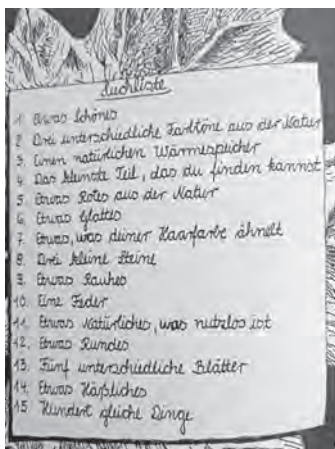 Suchliste
1. Etwas Schönes
2. Drei unterschiedliche Farbtöne aus der Natur
3. Einen natürlichen Wärmespeicher
4. Das kleinste Teil, das du finden kannst
5. Etwas Rotes aus der Natur
6. Etwas Glattes
7. Etwas, was deiner Haarfarbe ähnelt
8. Drei kleine Steine
9. Etwas Rauhes
10. Eine Feder
11. Etwas Natürliches, was nutzlos ist
12. Etwas Rundes
13. Fünf unterschiedliche Blätter
14. Etwas Häßliches
15 Hundert gleiche Dinge